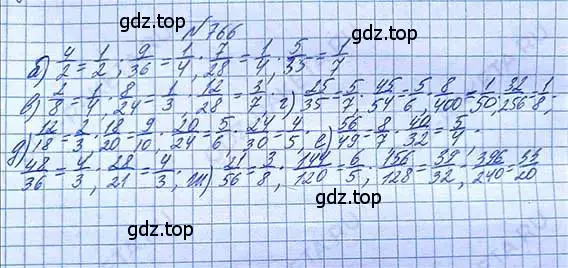 №766
б) 4/2 = 1/2; 9/36 = 1/4; 7/28 = 1/4, 5/35 = 1/7
в) 2/8 = 1/4, 8/24 = 1/3, 12/28 = 3/7 г) 25/35 = 5/7, 45/54 = 5/6, 8/400 = 1/50, 32/256 = 1/8,
д) 12/18 = 2/3, 18/20 = 9/10, 20/24 = 5/6, 24/30 = 4/5, е) 56/49 = 8/7, 40/32 = 5/4,
48/36 = 4/3, 28/21 = 4/3, ж) 21/56 = 3/8, 144/120 = 6/5, 156/128 = 39/32, 396/240 = 33/20
gdz.top
gdz.top
gdz.top
gdz.top
gdz.top